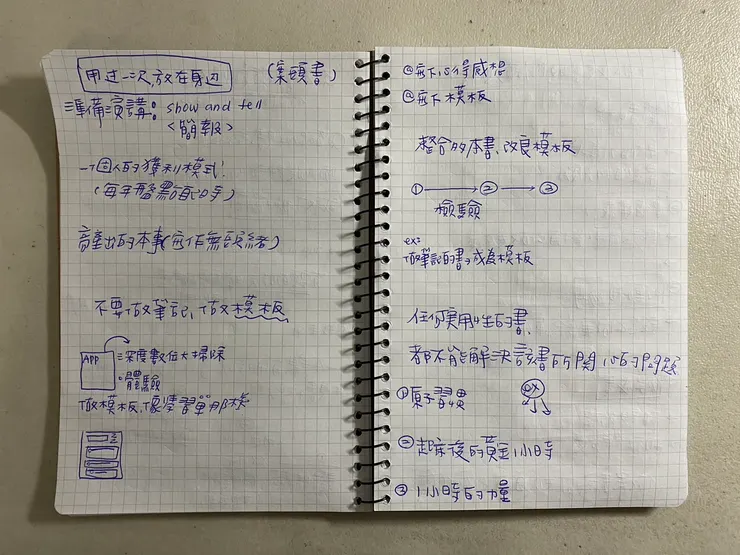 用过一次,放在身边
(案頭書)
準備演講: show and tell
<簡報>
一個人的獲利模式!
(每年盤點自己)
產出的本事(寫作無頭緒)
不要做筆記,做模板
APP
深度數位大掃除
體驗
做模板,像學習單那樣
①寫下心得感想
②寫下模板
整合多本書,改良模板
① → ② → ③
檢驗
ex:
做筆記的書,成為模板
任何實用性的書,
都不能解決該書所關心的問題
① 原子習慣
② 起床後的黃金1小時
③ 1小時的力量